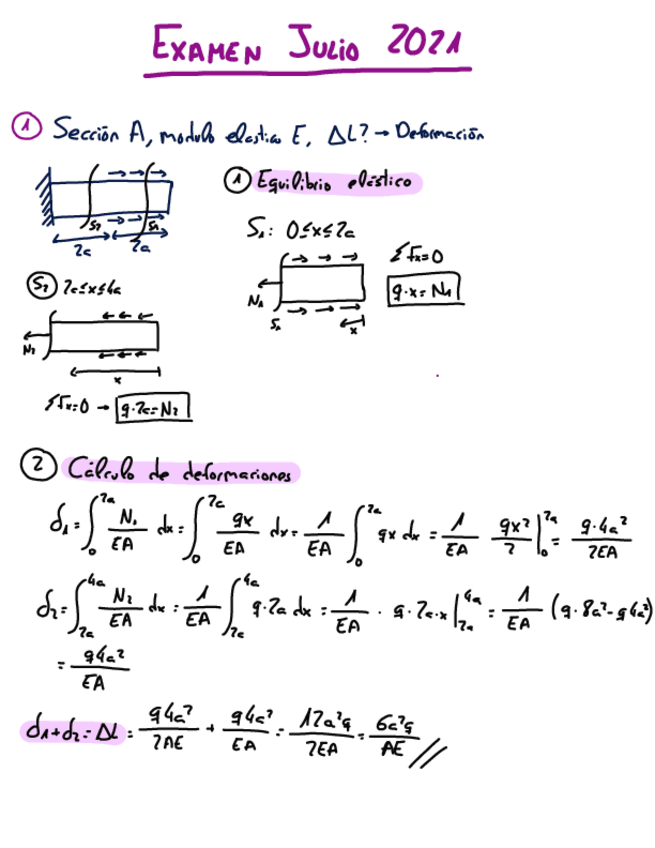 EXAMEN JULIO 2021
① Sección A, modulo elastico E, ΔL? → Deformación
① Equilibrio elástico
S₂ S₁
2a 2a
S₁: 0≤x≤2a
ΣFx=0
N₁
q·x=N₁
S₁ x
S₂ 2a≤x≤4a
N₂
x
ΣFx=0 → q·2a=N₂
② Cálculo de deformaciones
δ₁=∫₀²ᵃ N₁/EA dx = ∫₀²ᵃ qx/EA dx = 1/EA ∫₀²ᵃ qx dx = 1/EA qx²/2 |₀²ᵃ = q·4a²/2EA
δ₂=∫₂ₐ⁴ᵃ N₂/EA dx = 1/EA ∫₂ₐ⁴ᵃ q·2a dx = 1/EA · q·2a·x |₂ₐ⁴ᵃ = 1/EA (q·8a²-q4a²)
= q4a²/EA
δ₁+δ₂=ΔL = q4a²/2AE + q4a²/EA = 12a²q/2EA = 6a²q/AE //